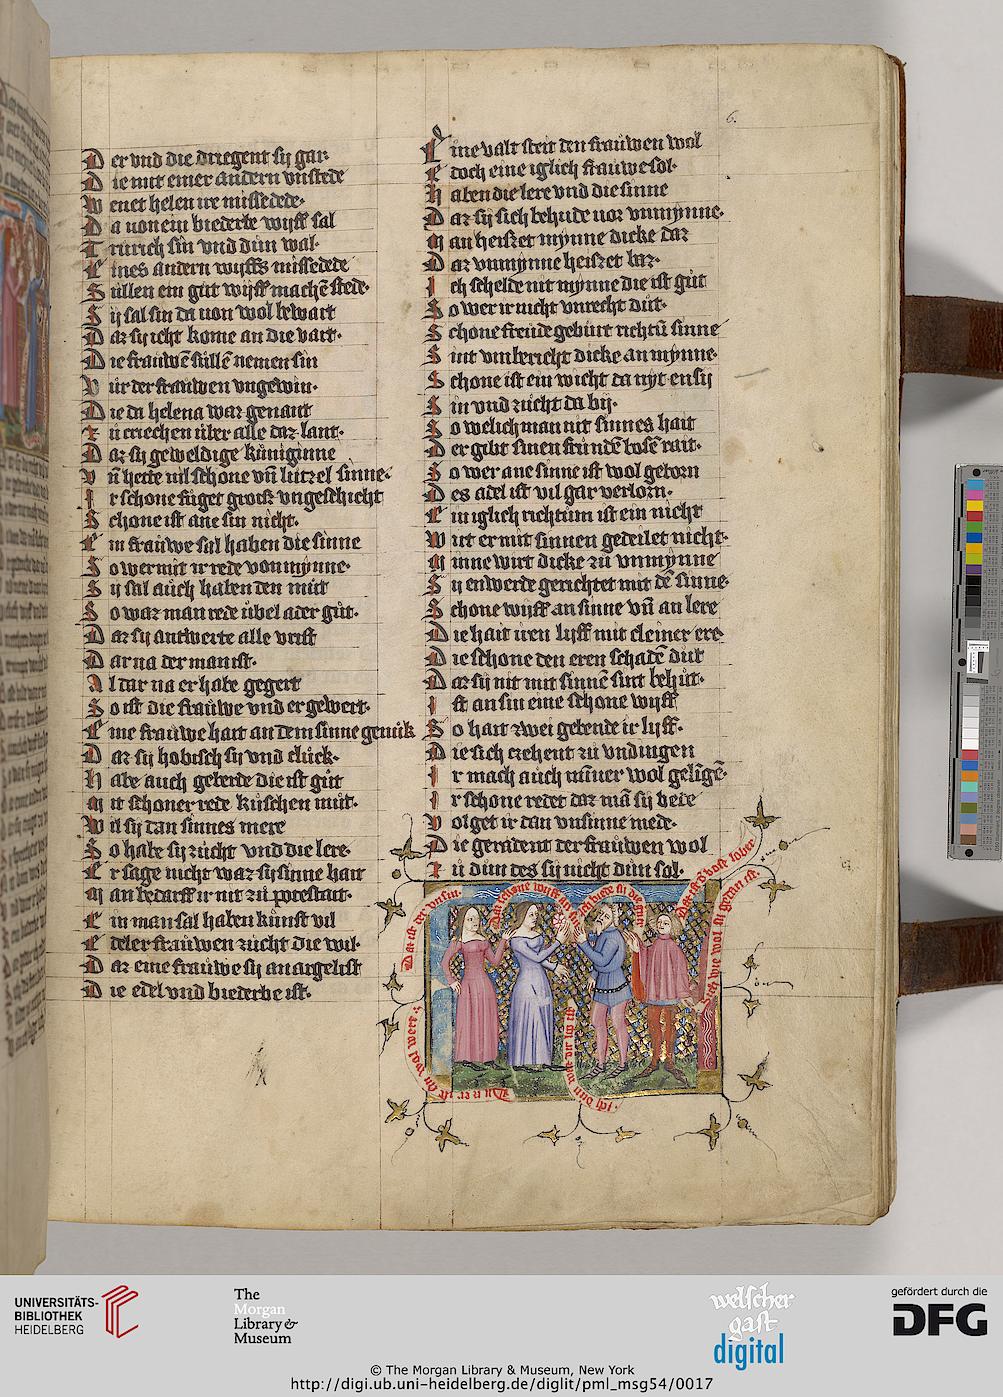 6.
Der vnd die driegent sij gar·
Die mit einer andern vnstede
Wenet helen ire missedede·
Da uon ein biederbe wijff sal
Trurich sin vnd dun wal·
Eines andern wijffs missedede
Sullen ein gut wijff machē stede·
Sij sal sin da uon wol bewart
Daz sij icht kome an die vart·
Die frauwē sullē nemen sin
Vur der frauwen vngewin·
Die da helena waz genant
Zu criechen uber alle daz lant·
Daz sij geweldige kuniginne
Vn̄ hette vil schone vn̄ lutzel sinne·
Ir schone fuget groisz vngeschicht
Schone ist ane sin nicht·
Ein frauwe sal haben die sinne
So wer mit ir rede von mynne·
Sij sal auch haben den mut
So waz man rede ubel ader gut·
Daz sij antwerte alle vrist
Dar na der man ist·
Al dar na er habe gegert
So ist die frauwe vnd er gewert·
Eine frauwe hart an dem sinne genuk
Daz sij hobisch sij vnd cluck·
Habe auch geberde die ist gut
Mit schoner rede kuschen mut·
Wil sij dan sinnes mere
So habe sij zucht vnd die lere·
Er sage nicht waz sij sinne hait
Man bedarff ir nit zu potestait·
Ein man sal haben kunst vil
Edeler frauwen zucht die wil·
Daz eine frauwe sij an argelist
Die edel vnd biederbe ist·
Eine valt steit den frauwen wol
Doch eine iglich frauwe sol·
Haben die lere vnd die sinne
Daz sij sich behude uor vnmynne·
Man heiszet mynne dicke daz
Daz vnmynne heiszet baz·
Ich schelde nit mynne die ist gut
So wer ir nicht vnrecht dut·
Schone freude geburt richtū sinne
Sint vmbericht dicke an mynne·
Schone ist ein wicht da nyt en sij
Sin vnd zucht da bij·
So welich man nit sinnes hait
Der gibt sinen frundē bosē rait·
So wer ane sinne ist wol geborn
Des adel ist vil gar verlorn·
Ein iglich richtum ist ein nicht
Wirt er mit sinnen gedeilet nicht·
Minne wirt dicke zu vnmynne
Sij en werde gerichtet mit dē sinne·
Schone wijff an sinne vn̄ an lere
Die hait iren lijff mit cleiner ere·
Die schone den eren schadē dut
Daz sij nit mit sinnē sint behut·
Ist an sin eine schone wijff
So hart zwei gebende ir lijff·
Die sich czehent zu vndingen
Ir mach auch nūner wol gelīgē·
Ir schone redet daz mā sij bede
Volget ir dan vnsinne mede·
Die geradent der frauwen wol
Zu dun des sij nicht dun sol·
Daz ist der vnsin·
Nu n er ist an wal were·
Daz schone wijff
Ich dun wie dir lip ist
Ich bede sij die gut
Daz ist bose lober
Sich wie wol si gebert ist·
UNIVERSITÄTS-
BIBLIOTHEK
HEIDELBERG
The
Morgan
Library &
Museum
welscher
gast
digital
gefördert durch die
DFG
© The Morgan Library & Museum, New York
http://digi.ub.uni-heidelberg.de/diglit/pml_msg54/0017